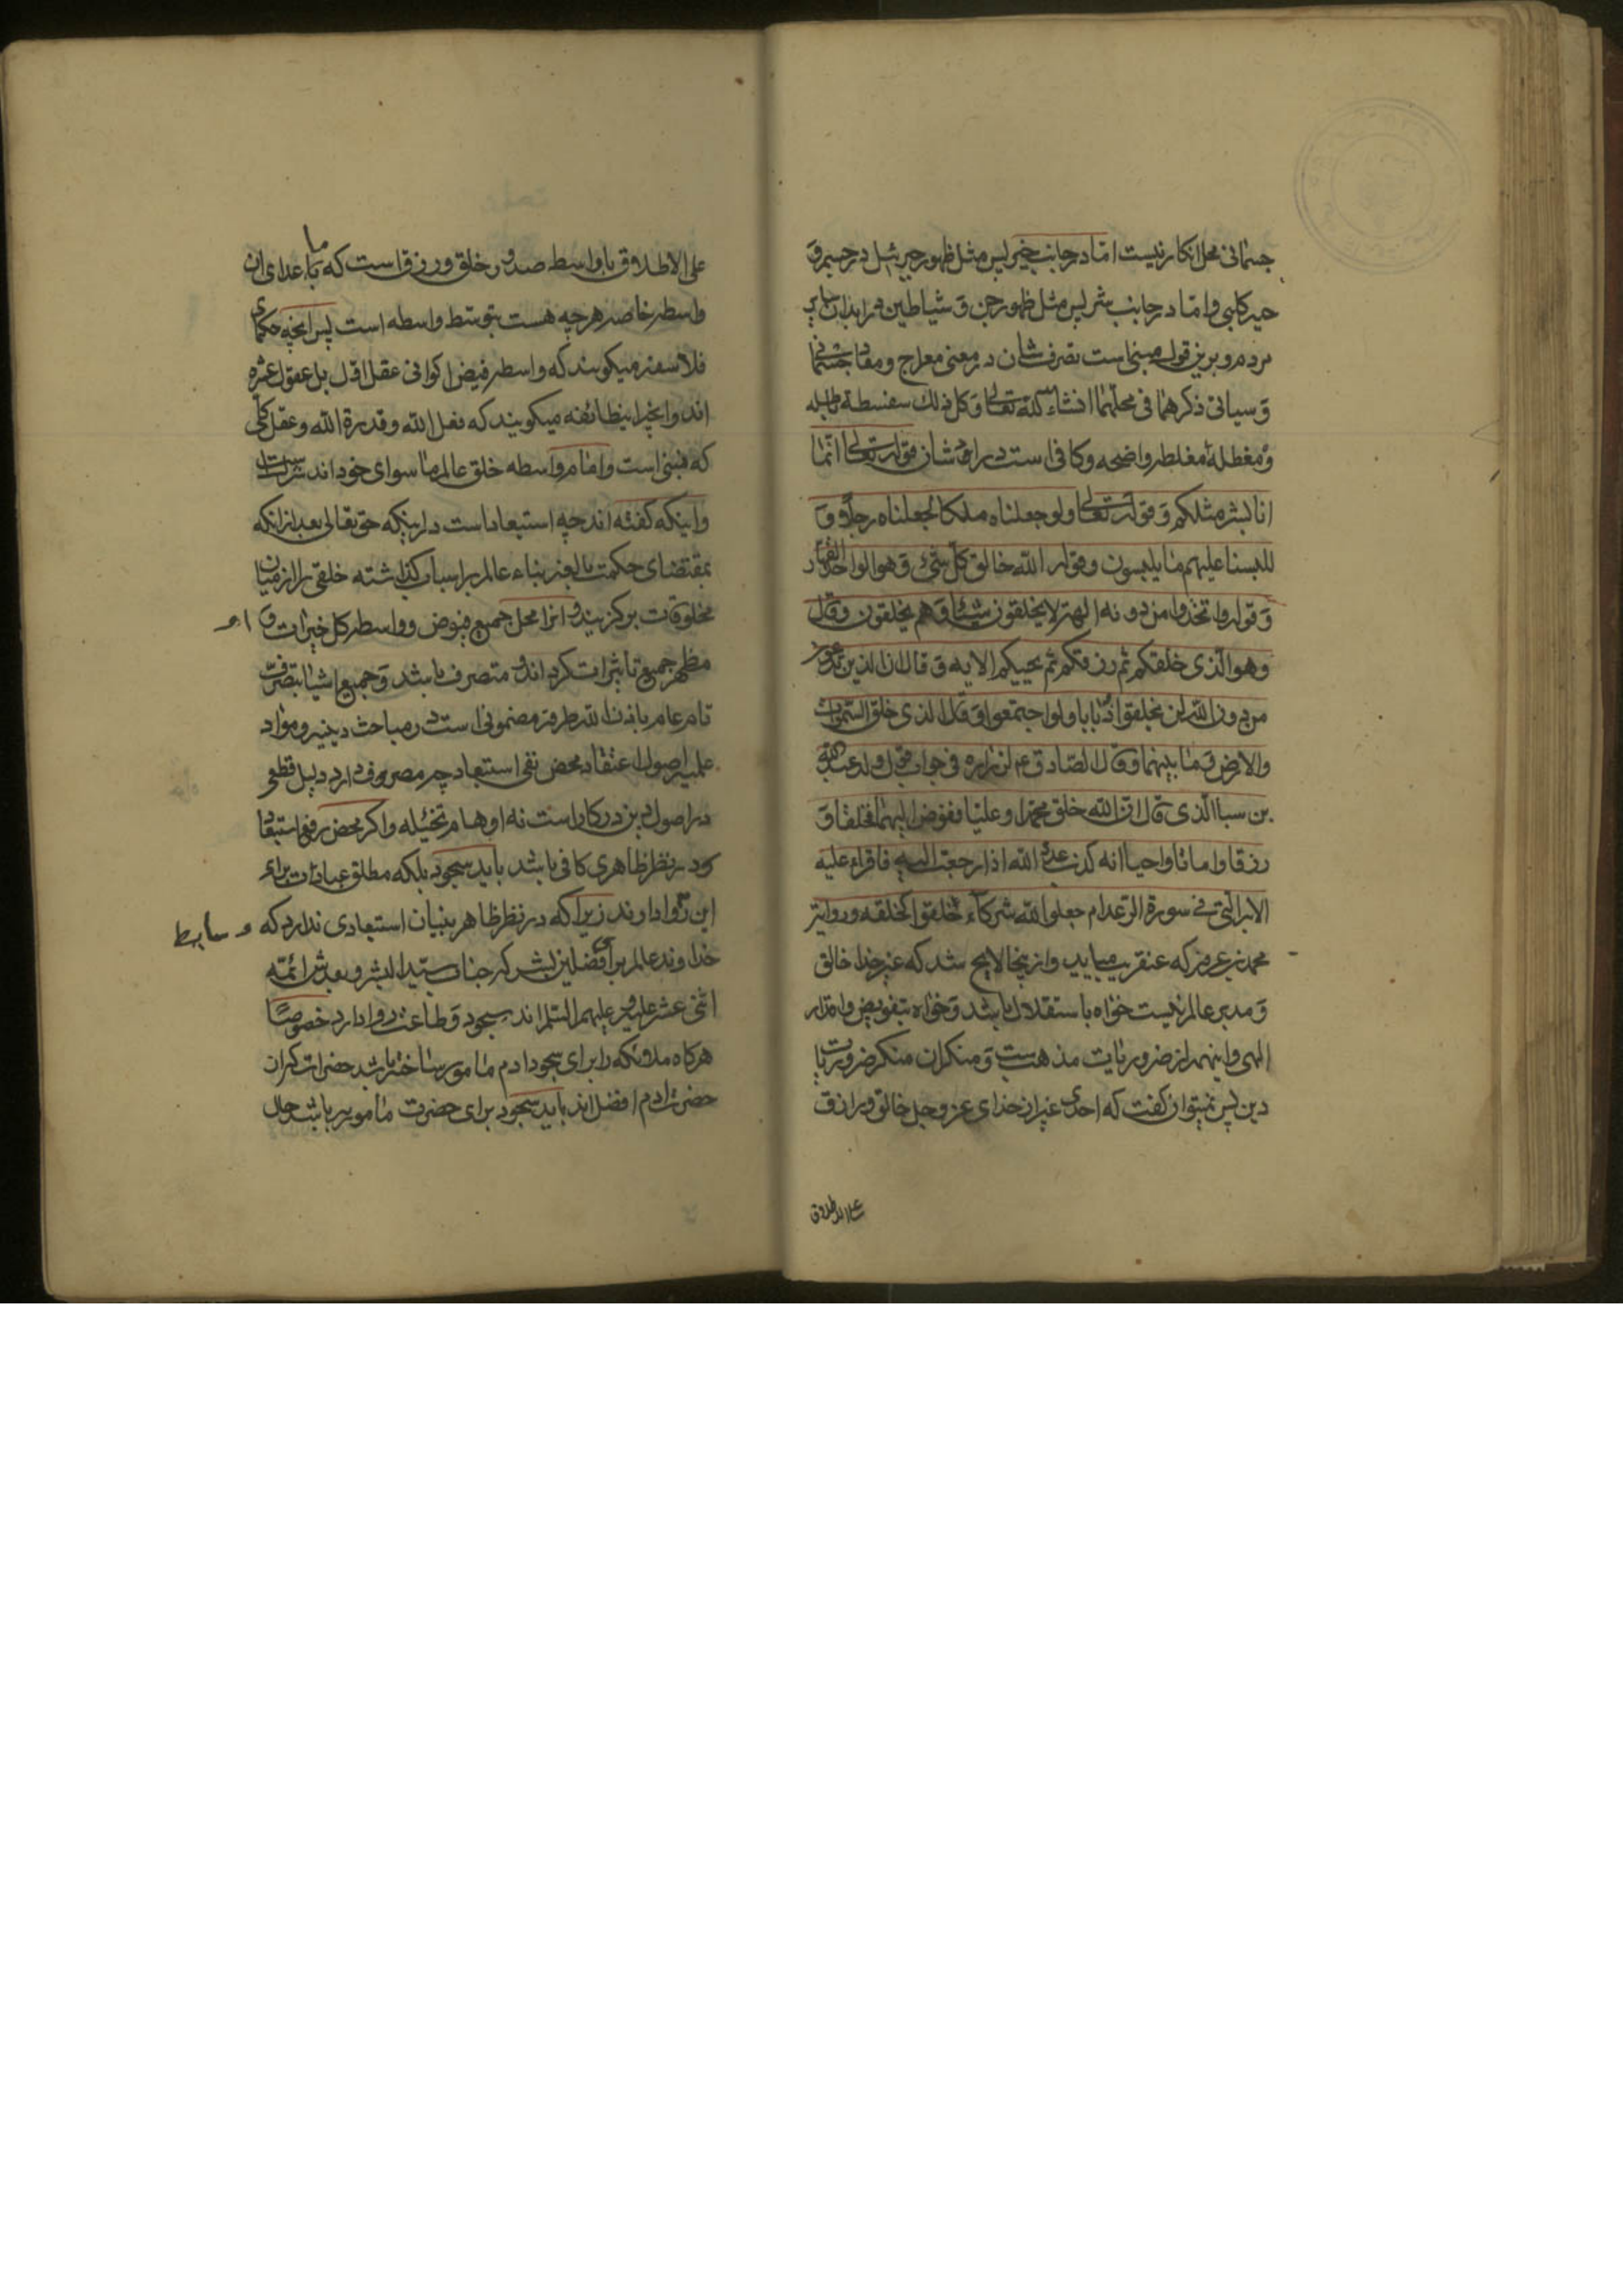 جسمانی محل انکار نیست اما در جانب خیر پس مثل ظهور جبرئیل در جسم و
حیه کلبی و اما در جانب شر پس مثل ظهور جن و شیاطین در ابدان سایر
مردم و برین قول مبنیاست تصرف شان در معنی معراج و معاد جسمانی
و سیاتی ذکرهما فی محلهما انشاء الله تعالی و کل ذلک سفسطة باطله
و مغطلة مغلطه واضحه و کافی است در رد شان قوله تعالی انما
انا بشر مثلکم و قوله تعالی ولو جعلناه ملکا لجعلناه رجلا و
للبسنا علیهم ما یلبسون و قوله الله خالق کل شیء و هو الواحد القهار
و قوله واتخذوا من دونه الهة لا یخلقون شیئا و هم یخلقون و قال
و هو الذی خلقکم ثم رزقکم ثم یحییکم الایه و قال ان الذین تدعون
من دون الله لن یخلقوا ذبابا ولو اجتمعوا و قال الذی خلق السموات
والارض و ما بینهما و قال الصادق ع لزراره فی جواب قول ولد عبد الله
بن سبا الذی قال ان الله خلق محمدا و علیا ففوض الیهما فخلقا و
رزقا و اماتا و احییا انه کذب عدو الله اذا رجعت الیه فاقراء علیه
الایه التی فی سورة الرعد ام جعلوا لله شرکاء خلقوا کخلقه و روایة
محمد بن عمر که عنقریب میاید و از ینجا لایح شد که غیر خدا خالق
و مدبر عالم نیست خواه باستقلال باشد و خواه بتفویض و اقدار
الهی و اینهم از ضروریات مذهبست و منکران منکر ضروریات
دین پس نمیتوان گفت که احدی غیر از خدای عز و جل خالق و رازق
علی الاطلاق
علی الاطلاق یا واسطه صدور خلق و رزق است که ما عدای ان
واسطه خاصه هرچه هست بتوسط واسطه است پس انچه حکمای
فلاسفه میکویند که واسطه فیض اکوانی عقل اول بل عقول عشره
اند وانچه اینطائفه میکویند که فعل الله و قدرة الله و عقل کلی
که نبی است و امام واسطه خلق عالم ما سوای خود اند
و اینکه گفته اند چه استبعاد است در اینکه حق تعالی بعد از انکه
بمقتضای حکمت بالغه بناء عالم بر اسباب گذاشته خلقی را از میان
مخلوقات برگزیند و انرا محل جمیع فیوض و واسطه کل خیرات و
مظهر جمیع تاثیرات کرداند و متصرف باشد و جمیع اشیا بتصرف
تام عام باذن الله طرفه مضمونی است در مباحث دینیه و مواد
علمیه اصول اعتقاد محض نفی استبعاد چه مصروف دارد دلیل قطعی
در اصول دین درکار است نه اوهام تخئیله و اکر محض رفع استبعاد
در نظر ظاهری کافی باشد باید سجود بلکه مطلق عبادات برای
این روا دارند زیرا که در نظر ظاهر بنیان استبعادی ندارد که
وسایط
خداوند عالم برای افضلین بشر که جناب سید البشر و بعدش ائمه
اثنی عشر علیه و علیهم السلم اند سجود و طاعت روا دارد خصوصا
هرکاه ملائکه را برای سجود ادم مامور ساخته باشد حضرات که از ان
حضرت ادم افضل اند باید سجود برای حضرت مامور به باشد حال